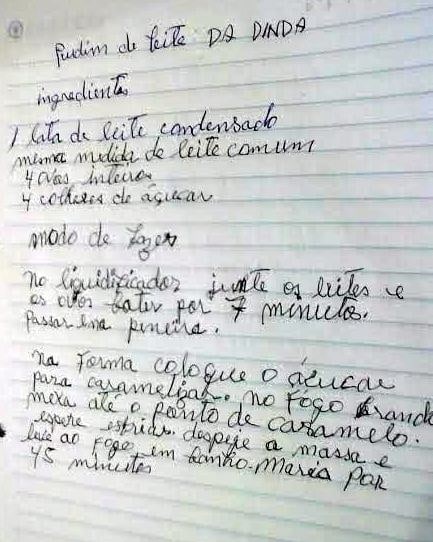 Pudim de leite DA DINDA
ingredientes
1 lata de leite condensado
mesma medida de leite comum
4 ovos inteiros
4 colheres de açucar
modo de fazer
no liquidificador junte os leites e
os ovos bater por 7 minutos.
Passar ena peneira.
na Forma coloque o açucar
para caramelizar. no Fogo brando
mexa até o ponto de caramelo.
espere esfriar. despeje a massa e
leve ao fogo em banho-maria por
45 minutos